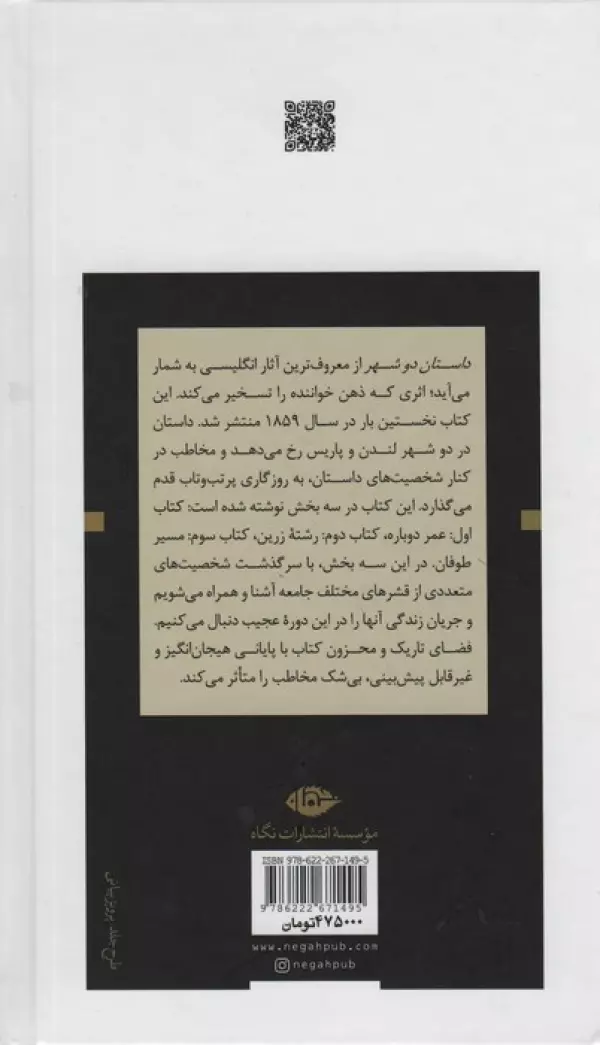 داستان دو شهر از معروف‌ترین آثار انگلیسی به شمار
می‌آید؛ اثری که ذهن خواننده را تسخیر می‌کند. این
کتاب نخستین بار در سال ۱۸۵۹ منتشر شد. داستان
در دو شهر لندن و پاریس رخ می‌دهد و مخاطب در
کنار شخصیت‌های داستان، به روزگاری پرتب‌وتاب قدم
می‌گذارد. این کتاب در سه بخش نوشته شده است: کتاب
اول: عمر دوباره، کتاب دوم: رشتهٔ زرین، کتاب سوم: مسیر
طوفان. در این سه بخش، با سرگذشت شخصیت‌های
متعددی از قشرهای مختلف جامعه آشنا و همراه می‌شویم
و جریان زندگی آنها را در این دورهٔ عجیب دنبال می‌کنیم.
فضای تاریک و محزون کتاب با پایانی هیجان‌انگیز و
غیرقابل پیش‌بینی، بی‌شک مخاطب را متأثر می‌کند.
مؤسسهٔ انتشارات نگاه
ISBN 978-622-267-149-5
9 786222 671495
۴۷۵۰۰۰تومان
www.negahpub.com
negahpub
طرح جلد: